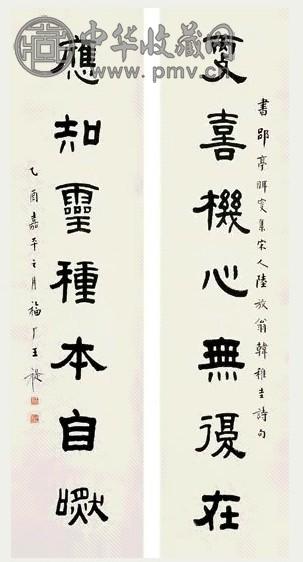 中华收藏网
www.pmv.cn
書郘亭眲叟集宋人陸放翁韓稚圭詩句
更喜機心無復在
應知靈種本自然
乙酉嘉平之月福厂王禔